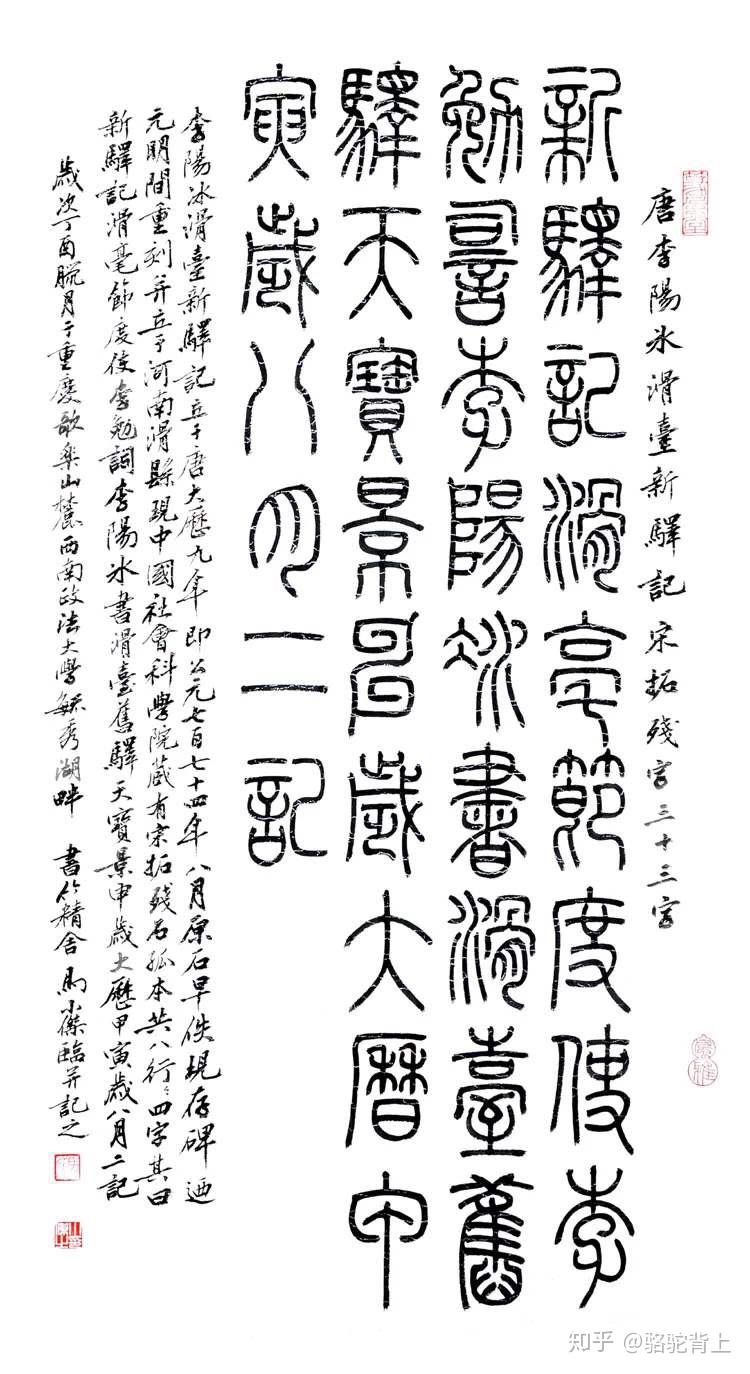 唐李陽冰滑臺新驛記宋拓殘字三十三字
新驛記滑亳節度使李
勉詞李陽冰書滑臺舊
驛天寶景申歲大曆甲
寅歲八月二記
李陽冰滑臺新驛記立于唐大歷九年即公元七百七十四年八月原石早佚現存碑迺
元明間重刻并立于河南滑縣現中國社會科學院藏有宋拓殘石孤本共八行〻四字其曰
新驛記滑亳節度使李勉詞李陽冰書滑臺舊驛天寶景申歲大歷甲寅歲八月二記
歲次丁酉臘月于重慶歌樂山麓西南政法大學毓秀湖畔 書竹精舍馬小傑臨并記之
知乎 @骆驼背上